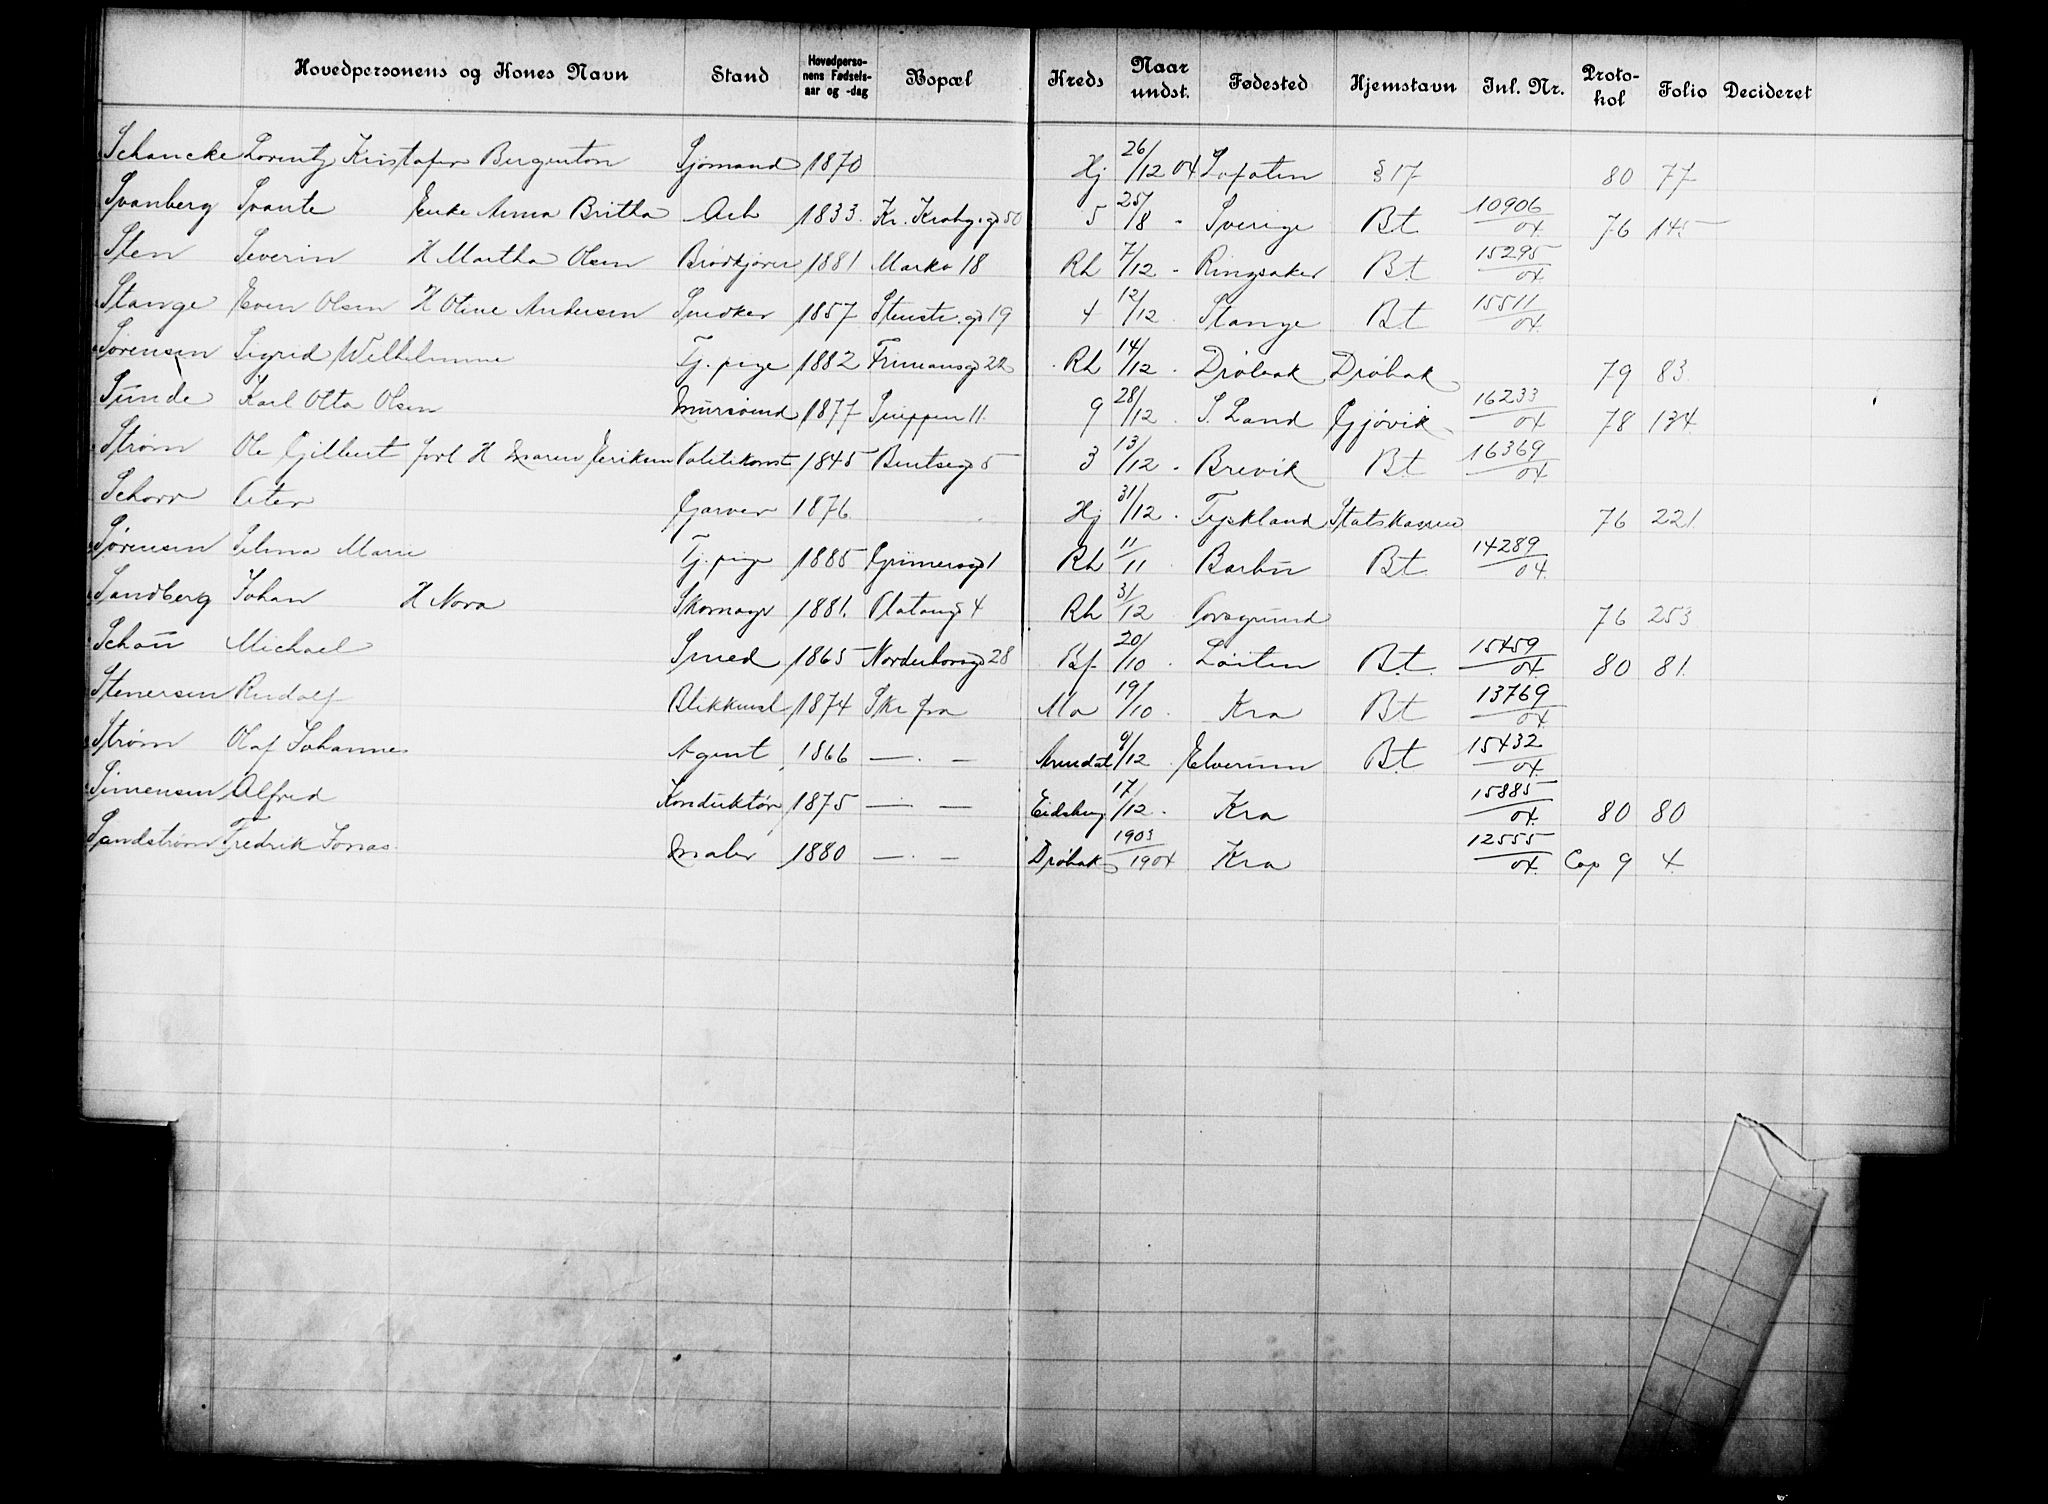 Hovedpersonens og Kones Navn Stand Hovedperso-nens Fødsels-aar og -dag Bopæl Kreds Naar undst. Fødested Hjemstavn Inl. Nr. Proto-kol Folio Decideret
Schancke Lorentz Kristofer Bergenton Sjømand 1870 Hj 26/12 04 Lofoten § 17 80 77
Svanberg Svante Enke Anna Britha Arb 1833. Kr. Krohgs g 50 5 25/8 - Sverige Bt 10906/04. 76 145
Sten Severin H Martha Olsen Brødkjører 1881 Markv 18 Rh 7/12 - Ringsaker Bt 15295/04.
Stange Even Olsen H Oline Andersen Snedker 1857 Stenstr. g 19 4 12/12 Stange Bt 15511/04.
Sørensen Sigrid Wilhelmine Tj. pige 1882 Frimansg 22 Rh 14/12 . Drøbak Drøbak 79 83
Sunde Karl Otto Olsen Mursvend 1877 Sneppen 11. 9 28/12 . S. Land Gjøvik 16233/04 78 134
Strøm Ole Gilbert forl H Maren Eriksen Politikonst 1845 Bentseg 5 3 13/12 . Brevik Bt 16369/04
Schorr Peter Garver 1876 Hj 31/12 . Tyskland Statskassen 76 221.
Sørensen Selma Marie Tj. pige 1885 Grünersg 1 Rh 11/11 Barbu Bt 14289/04.
Sandberg Johan H Nora Skomager 1881. Platoug 4 Rh 31/12 Porsgrund 76 253
Schou Michael Smed 1865 Norderhovsg 28 Bf. 20/10 . Løiten Bt. 15459/04. 80 81.
Stenersen Rudolf Blikkensl 1874 Ske fra Mo 19/10 . Kra Bt 13769/04.
Strøm Olaf Johannes Agent 1866 — . — Arendal 9/12 . Elverum Bt 15432/04.
Simensen Alfred Konduktør 1875 — . — Eidsberg 17/12 . Kra 15885/04. 80 80
Sandstrøm Fredrik Jonas Maler 1880 — . — Drøbak 1903/1904 Kra 12555/04. Cop 9 4.